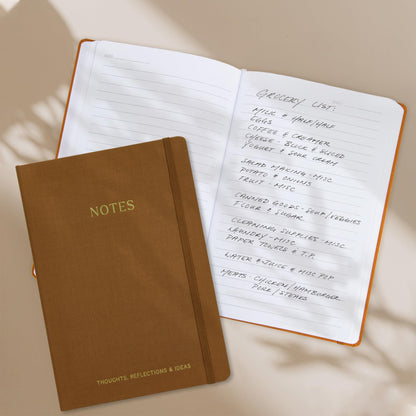 GROCERY LIST:
MILK & HALF/HALF
EGGS
COFFEE & CREAMER
CHEESE - BLOCK & SLICED
YOGURT & SOUR CREAM
SALAD MAKING - MISC
POTATO & ONIONS
FRUIT - MISC
CANNED GOODS - SOUP/VEGGIES
FLOUR & SUGAR
CLEANING SUPPLIES - MISC
LAUNDRY - MISC
PAPER TOWELS & T.P.
WATER & JUICE & MISC POP
MEATS: CHICKEN/HAMBURGER
PORK/STEAKS
NOTES
THOUGHTS, REFLECTIONS & IDEAS